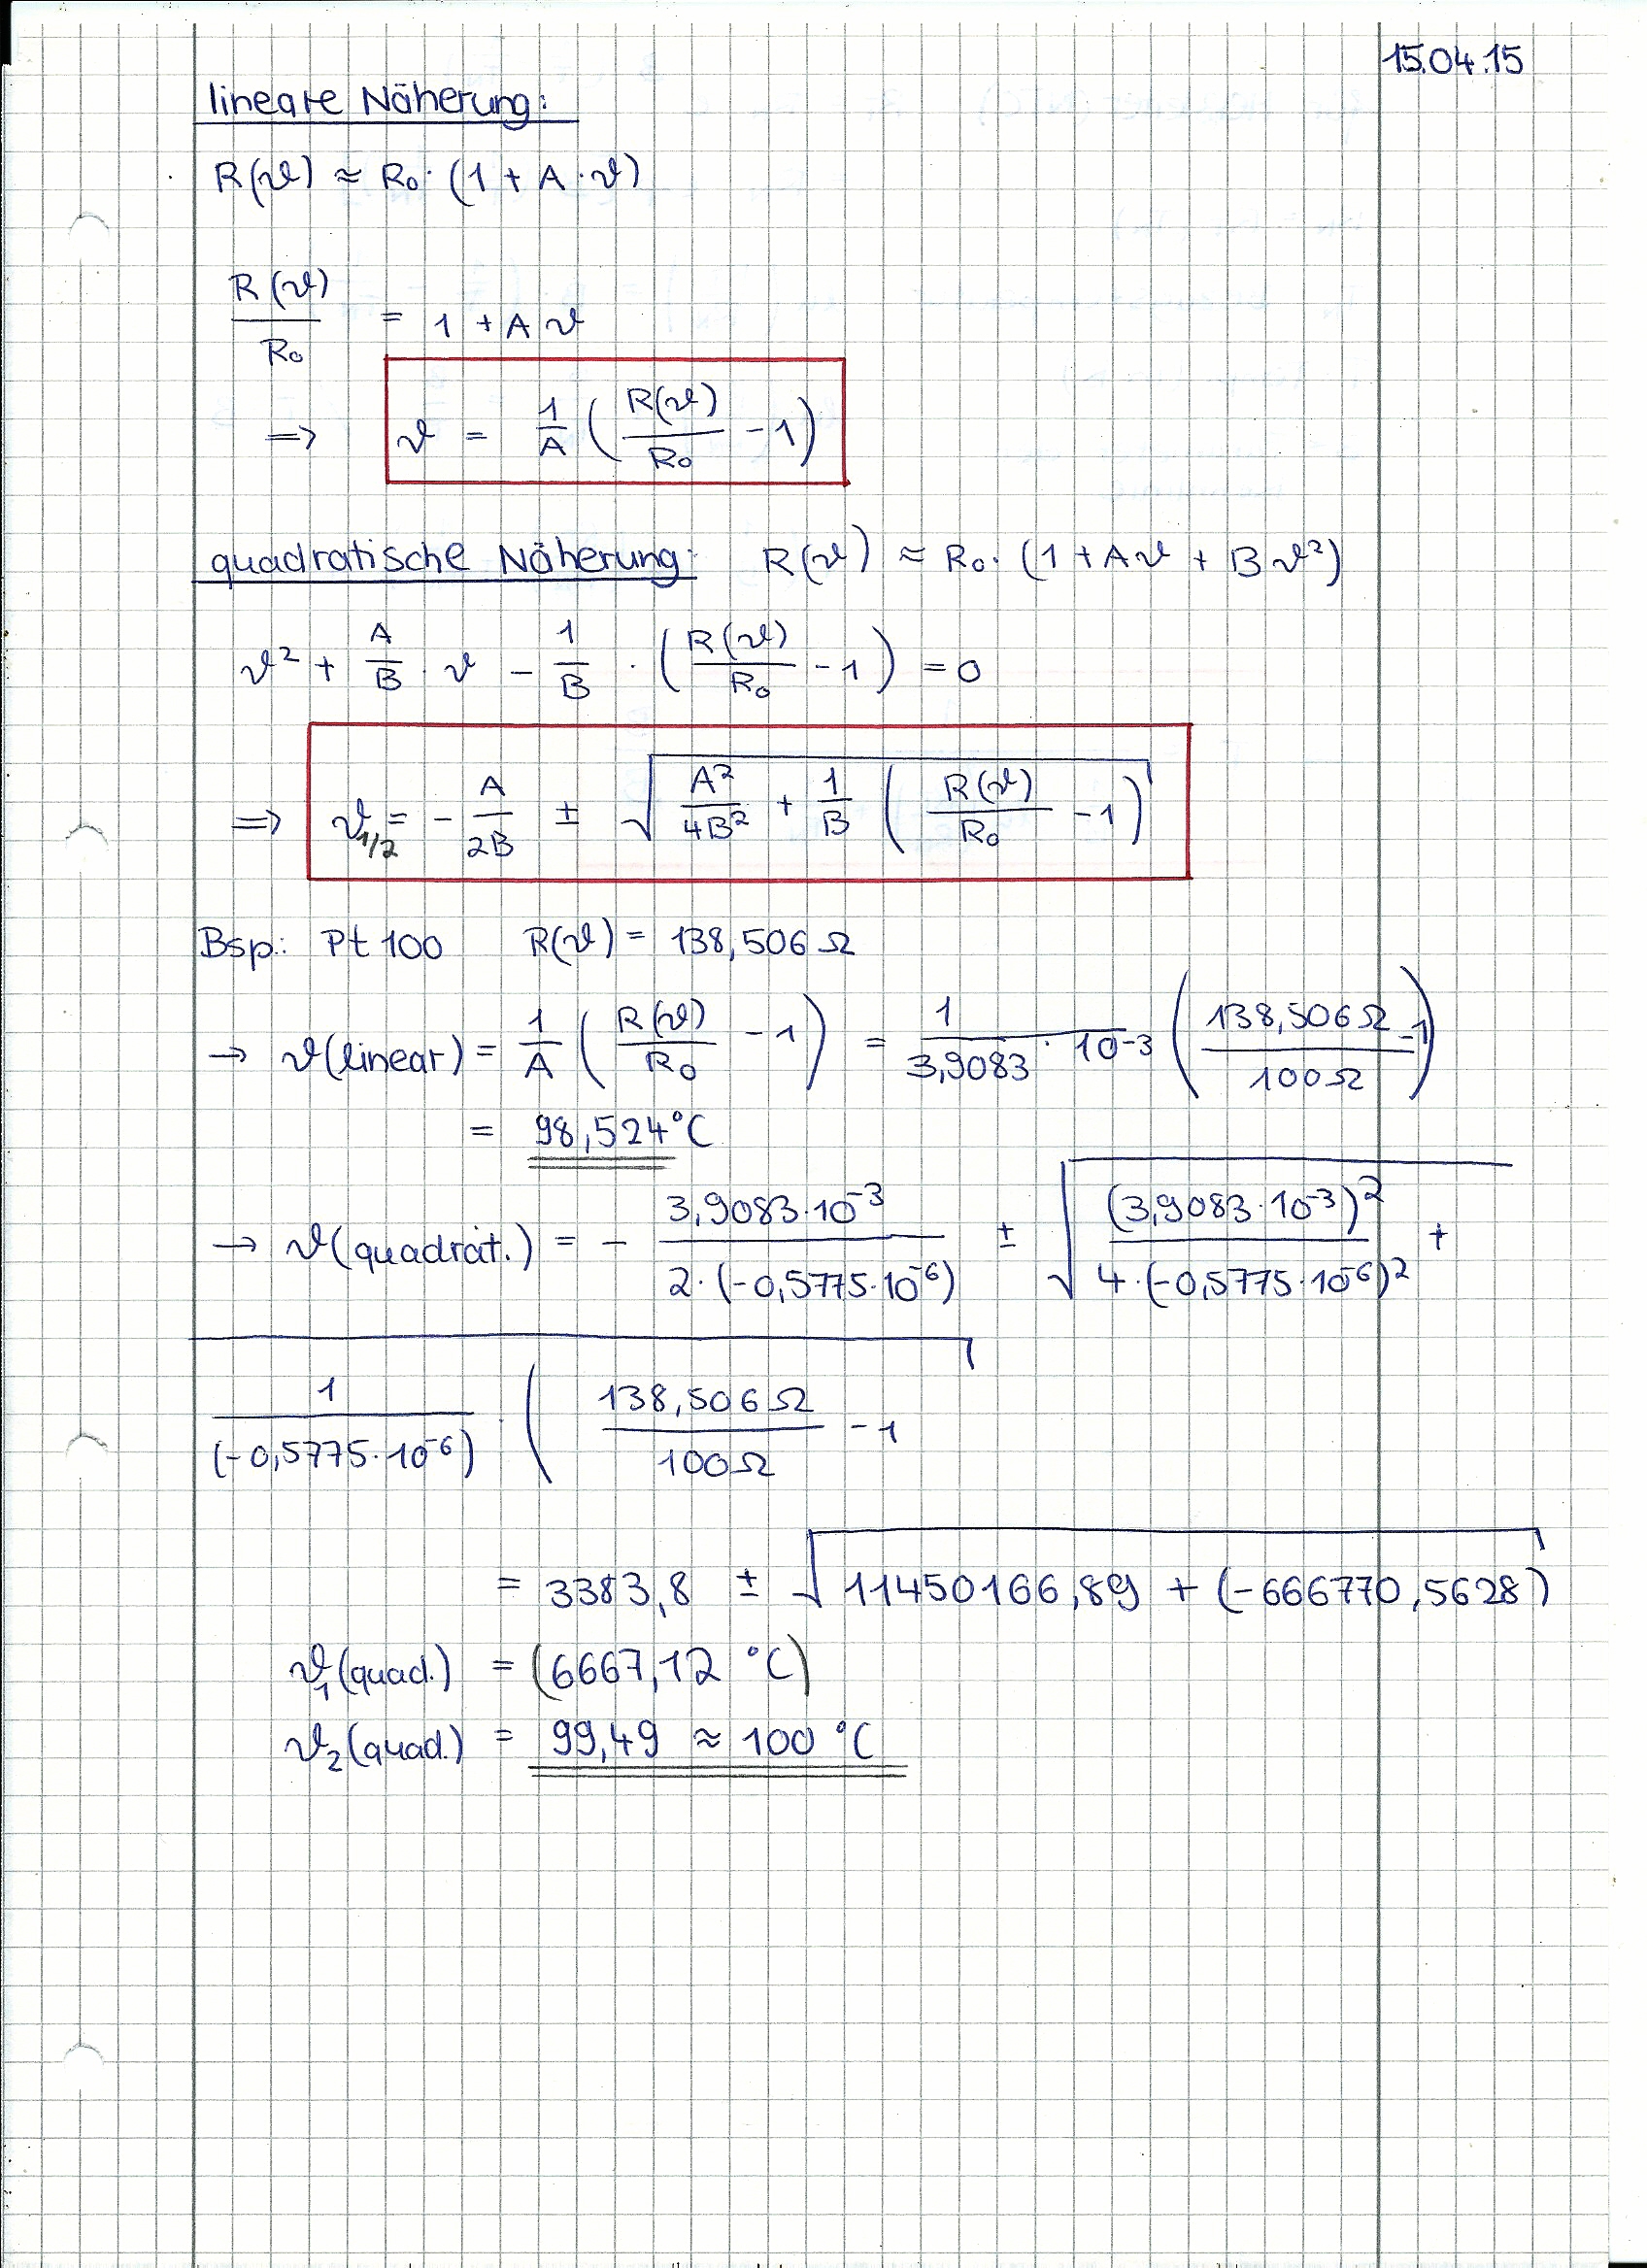 15.04.15
lineare Näherung:
R(ϑ) ≈ R₀ · (1 + A · ϑ)
R(ϑ)/R₀ = 1 + A ϑ
=> ϑ = 1/A (R(ϑ)/R₀ - 1)
quadratische Näherung: R(ϑ) ≈ R₀ · (1 + Aϑ + Bϑ²)
ϑ² + A/B · ϑ - 1/B · (R(ϑ)/R₀ - 1) = 0
=> ϑ₁/₂ = - A/2B ± √(A²/4B² + 1/B (R(ϑ)/R₀ - 1))
Bsp.: Pt 100 R(ϑ) = 138,506 Ω
→ ϑ(linear) = 1/A (R(ϑ)/R₀ - 1) = 1/3,9083 · 10⁻³ (138,506 Ω/100 Ω - 1)
= 98,524 °C
→ ϑ(quadrat.) = - 3,9083 · 10⁻³/2 · (-0,5775 · 10⁻⁶) ± √(3,9083 · 10⁻³)²/4 · (-0,5775 · 10⁻⁶)² +
1/(-0,5775 · 10⁻⁶) · (138,506 Ω/100 Ω - 1
= 3383,8 ± √11450166,89 + (-666770,5628)
ϑ₁(quad.) = (6667,12 °C)
ϑ₂(quad.) = 99,49 ≈ 100 °C